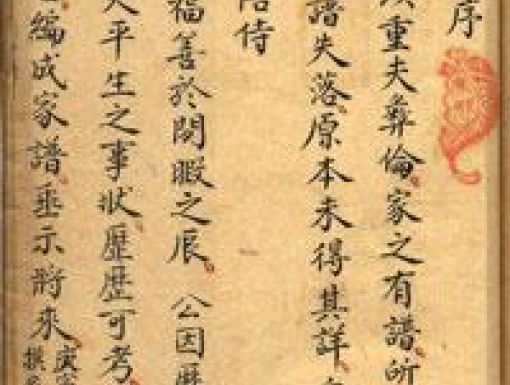 序
重夫彝倫家之有譜所
譜失落原本未得其詳
陪侍
福善於閑暇之辰公因歷
平生之事狀歷歷可考
編成家譜垂示將來